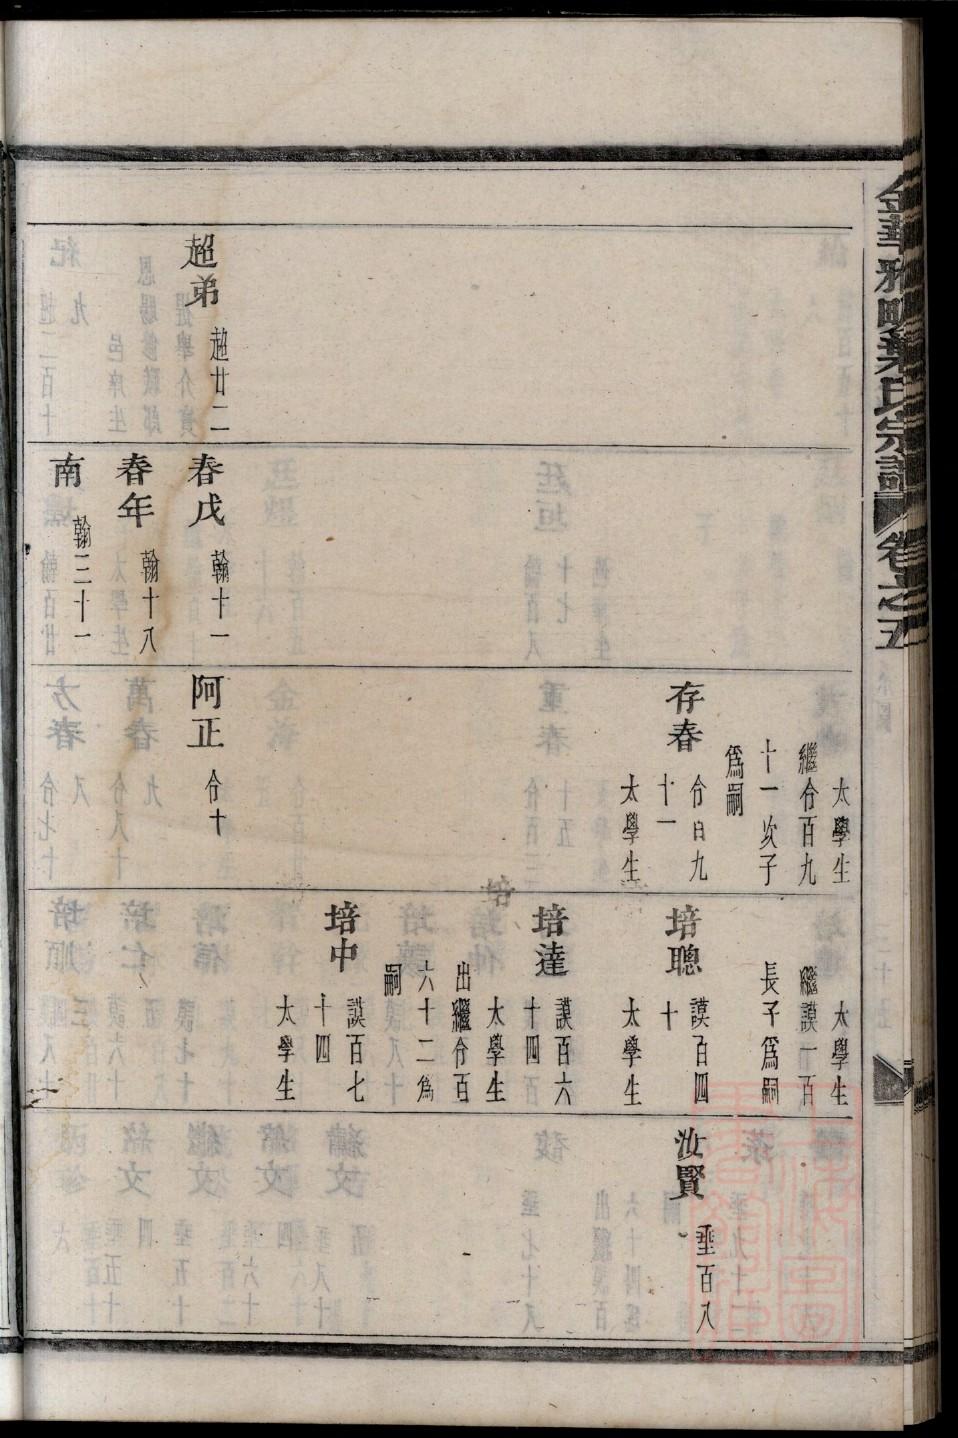 卷之五
超弟
超廿二
春戊
翰十一
春年
翰十八
南
翰三十一
太學生
繼仱百九
十一次子
爲嗣
存春
仱百九
十一
太學生
阿正
仱十
太學生
繼謨一百
長子爲嗣
培聰
謨百四
十
太學生
培
培達
謨百六
十四
太學生
出繼仱百
六十二爲
嗣
培中
謨百七
十四
太學生
汝賢
垂百八